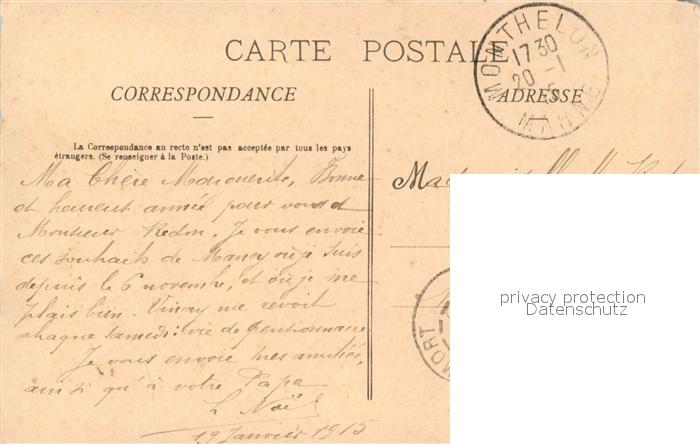 CARTE POSTALE
MONTHELON
17 30
20 -1
MARNE
CORRESPONDANCE
ADRESSE
La Correspondance au recto n'est pas acceptée par tous les pays
étrangers. (Se renseigner à la Poste.)
Ma Chère Marguerite, Bonne
et heureuse année pour vous et
Monsieur Redon. Je vous envoie
ces souhaits de Mancy où je suis
depuis le 6 novembre, et où je me
plais bien. Vinay me revoit
chaque samedi : vie de pensionnaire
Je vous envoie mes amitiés,
ainsi qu'à votre Papa
L Noël
19 Janvier 1915
MORT
privacy protection
Datenschutz